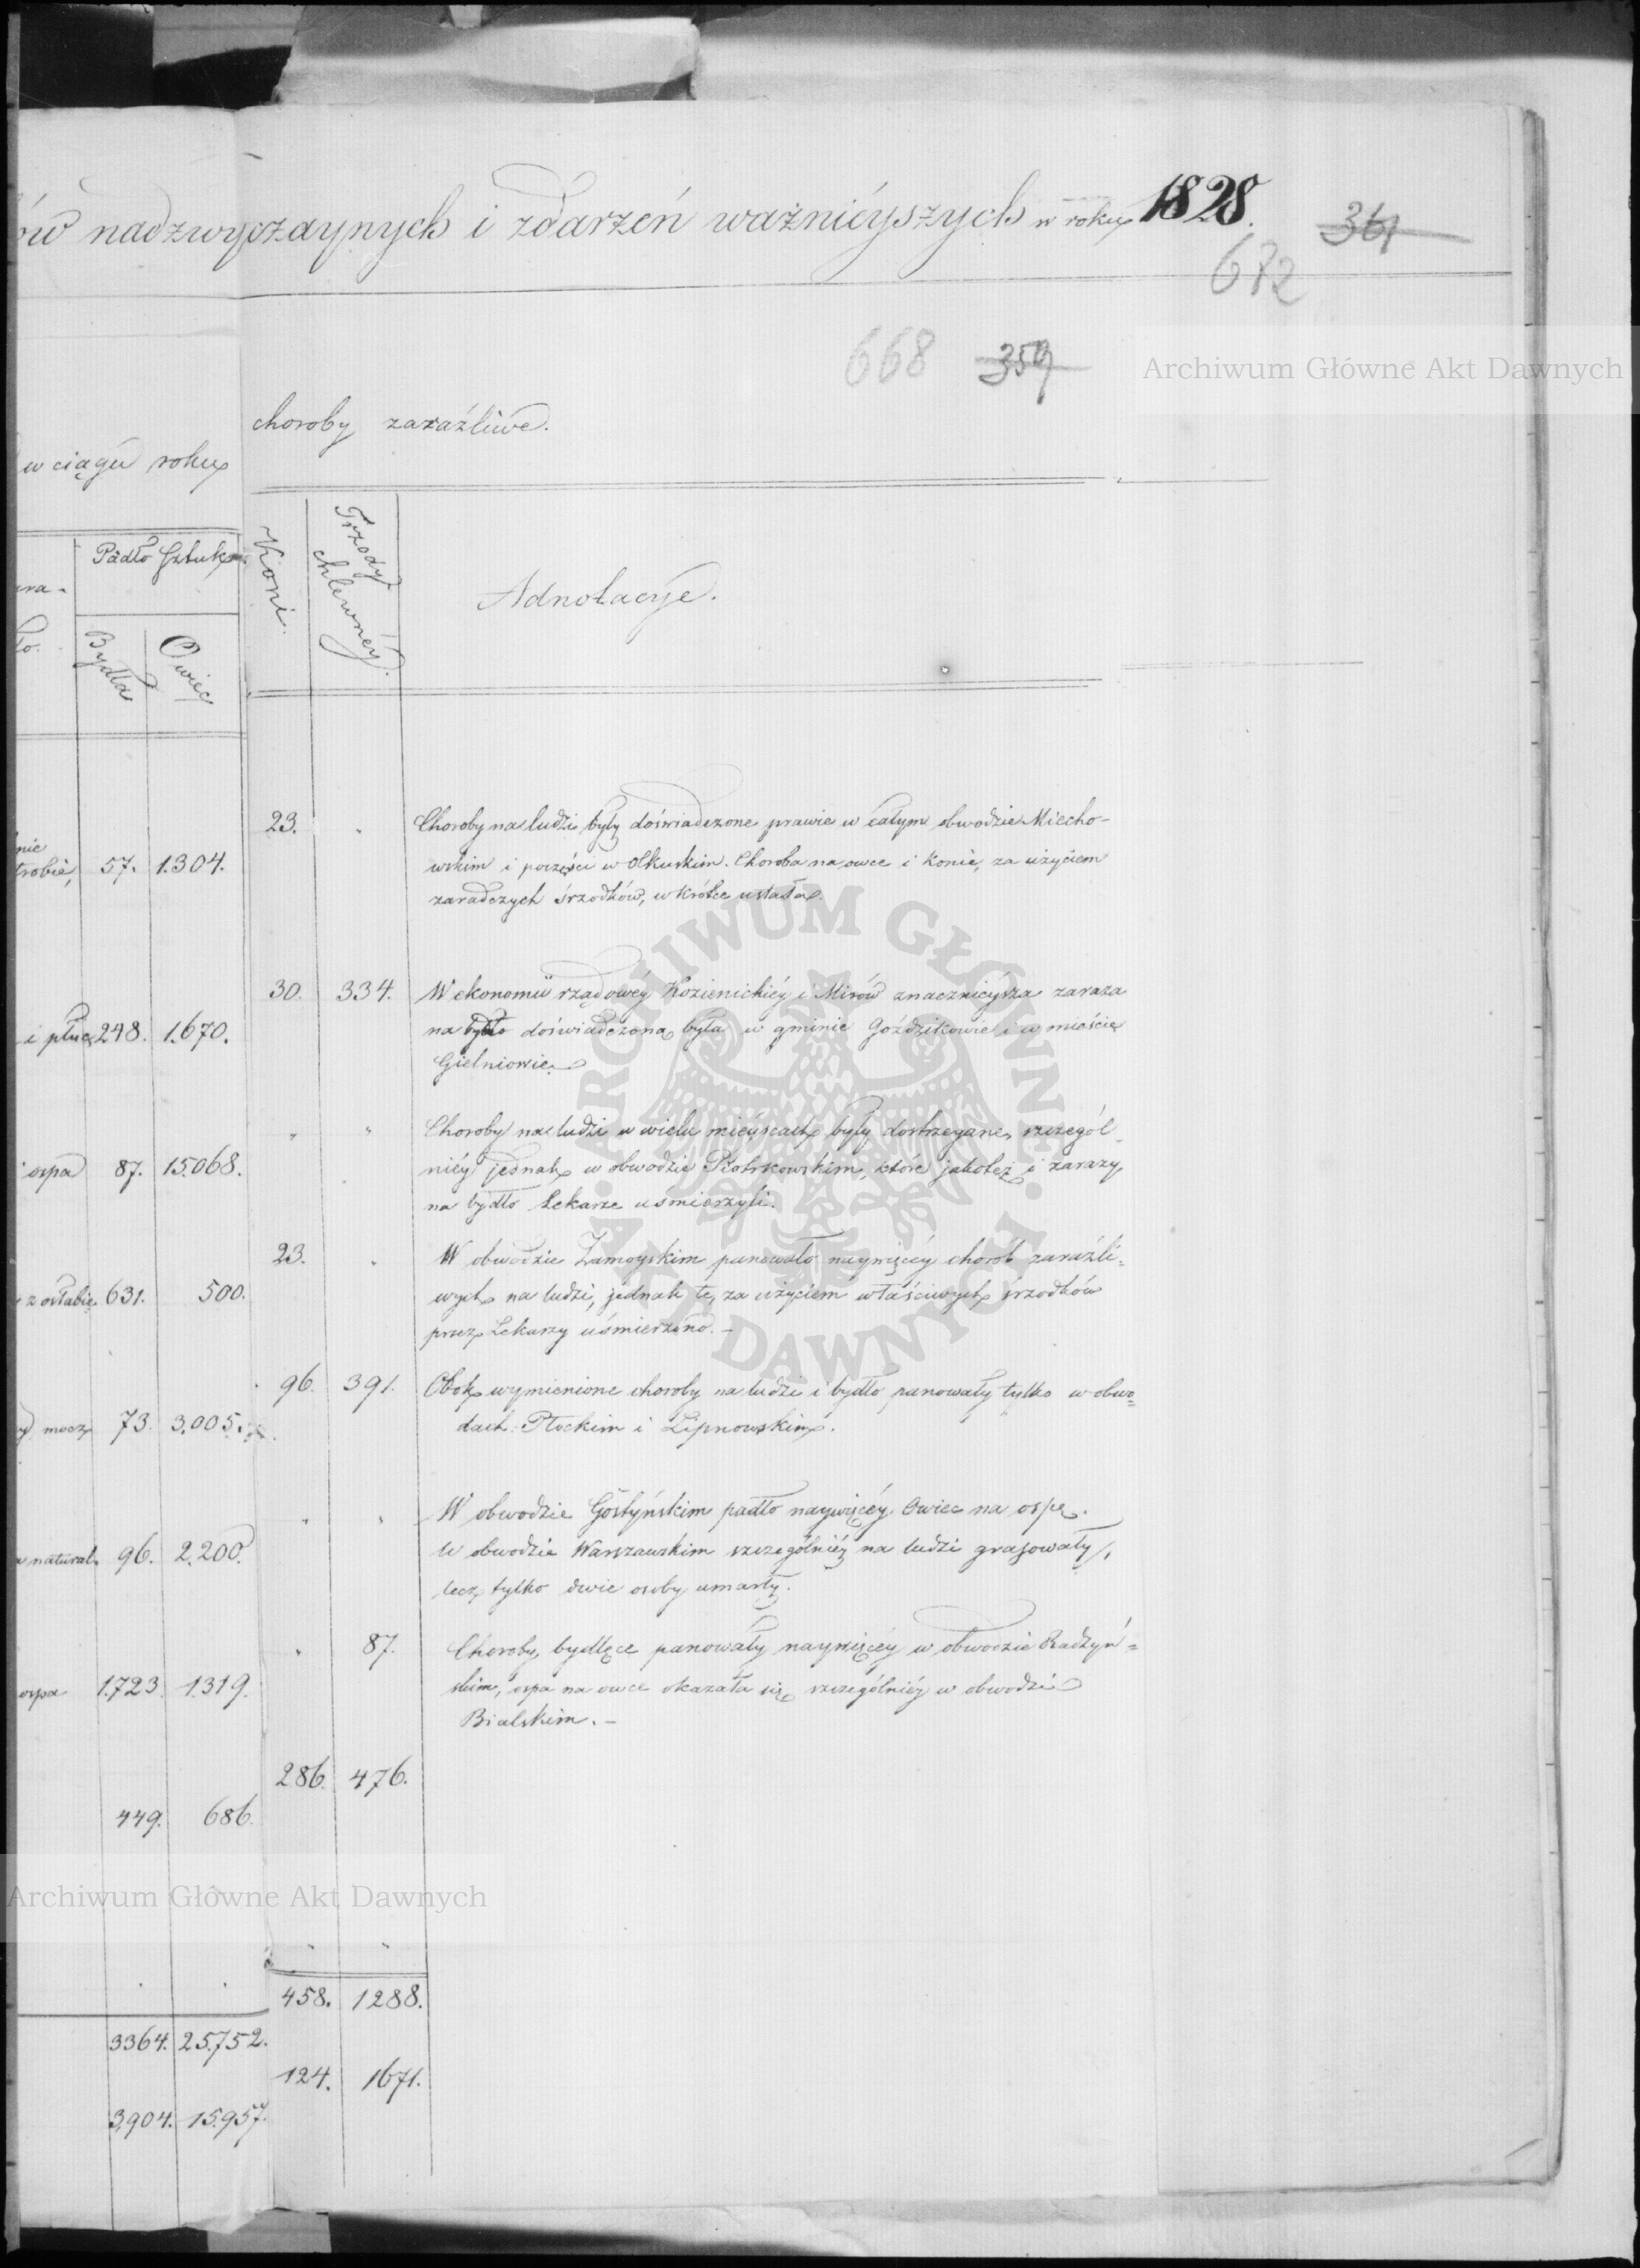 ów nadzwyczaynych i zdarzeń ważnieyszych w roku 1828.
361
672
668 359
Archiwum Główne Akt Dawnych
choroby zaraźliwe.
w ciągu roku
Padło Sztuk
Koni.
Trzody chlewnéy.
Adnotacye.
Bydła
Owiec
23. "
Choroby na ludzi były doświadczone prawie w całym obwodzie Miecho-
wskim i poczęści w Olkuskim. Choroba na owce i konie, za użyciem
57. 1.304.
zaradczych śrzodków, w krótce ustała.
30. 334. W ekonomii rządowéy Kozienickiéy i Mirów znacznieysza zaraza
i płuc 248. 1.670.
na bydło doświadczona była w gminie Goździkowie i w mieście
Gielniowie.
" " Choroby na ludzi w wielu mieyscach były dostrzegane, szczegól-
ospa 87. 15.068.
niéy jednak w obwodzie Piotrkowskim, które jakoteż i zarazy
na bydło Lekarze uśmierzyli.
23. " W obwodzie Zamoyskim panowało naywięcéy chorób zaraźli-
631. 500.
wych na ludzi, jednak te, za użyciem właściwych śrzodków
przez Lekarzy uśmierzono. –
96. 391. Obok wymienione choroby na ludzi i bydło panowały tylko w obwo-
mocz 73. 3.005.
dach: Płockim i Lipnowskim.
" " W obwodzie Gostyńskim padło naywięcéy Owiec na ospę.
natural. 96. 2.200.
W obwodzie Warszawskim szczególniéy na ludzi grasowały,
lecz tylko dwie osoby umarły.
" 87. Choroby bydlęce panowały naywięcéy w obwodzie Radzyń=
ospa 1.723. 1.319.
skim, ospa na owce okazała się szczególniéy w obwodzie
Bialskim. –
286. 476.
449. 686.
Archiwum Główne Akt Dawnych
458. 1288.
3364. 25.752.
124. 1671.
3,904. 15.957.
ARCHIWUM GŁÓWNE AKT DAWNYCH